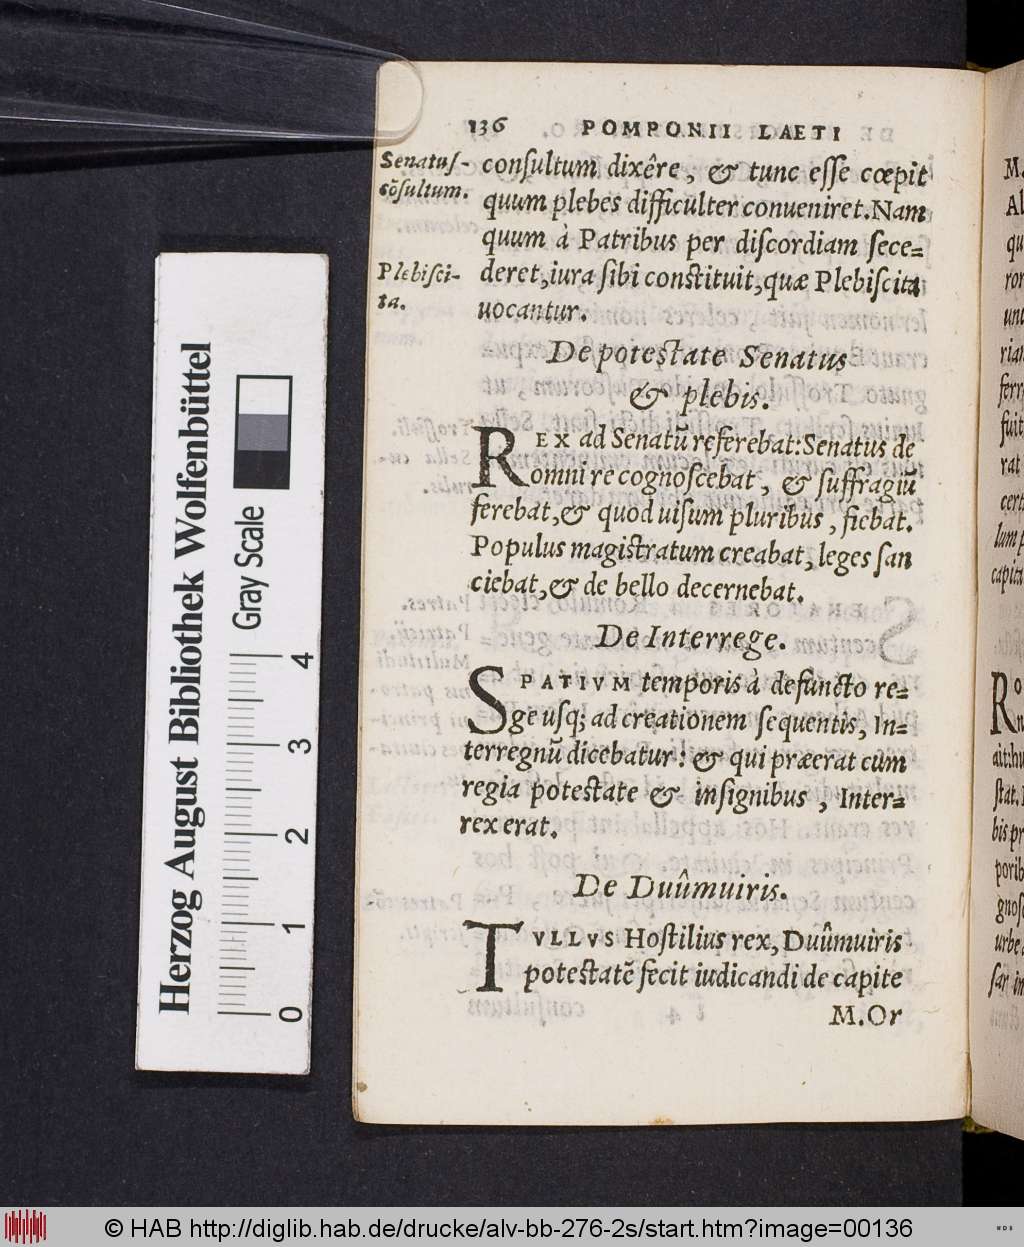 136 POMPONII LAETI
Senatus-
cõsultum.
consultum dixêre, & tunc esse cœpit
quum plebes difficulter conueniret. Nam
quum à Patribus per discordiam sece=
Plebisci-
ta.
deret, iura sibi constituit, quæ Plebiscita
uocantur.
De potestate Senatus
& plebis.
REX ad Senatũ referebat: Senatus de
omni re cognoscebat, & suffragiũ
ferebat, & quod uisum pluribus, fiebat.
Populus magistratum creabat, leges san
ciebat, & de bello decernebat.
De Interrege.
SPATIVM temporis à defuncto re=
ge usq; ad creationem sequentis, In=
terregnũ dicebatur: & qui præerat cum
regia potestate & insignibus, Inter=
rex erat.
De Duûmuiris.
TVLLVS Hostilius rex, Duûmuiris
potestatẽ fecit iudicandi de capite
M. Or
Herzog August Bibliothek Wolfenbüttel
Gray Scale
0 1 2 3 4
© HAB http://diglib.hab.de/drucke/alv-bb-276-2s/start.htm?image=00136